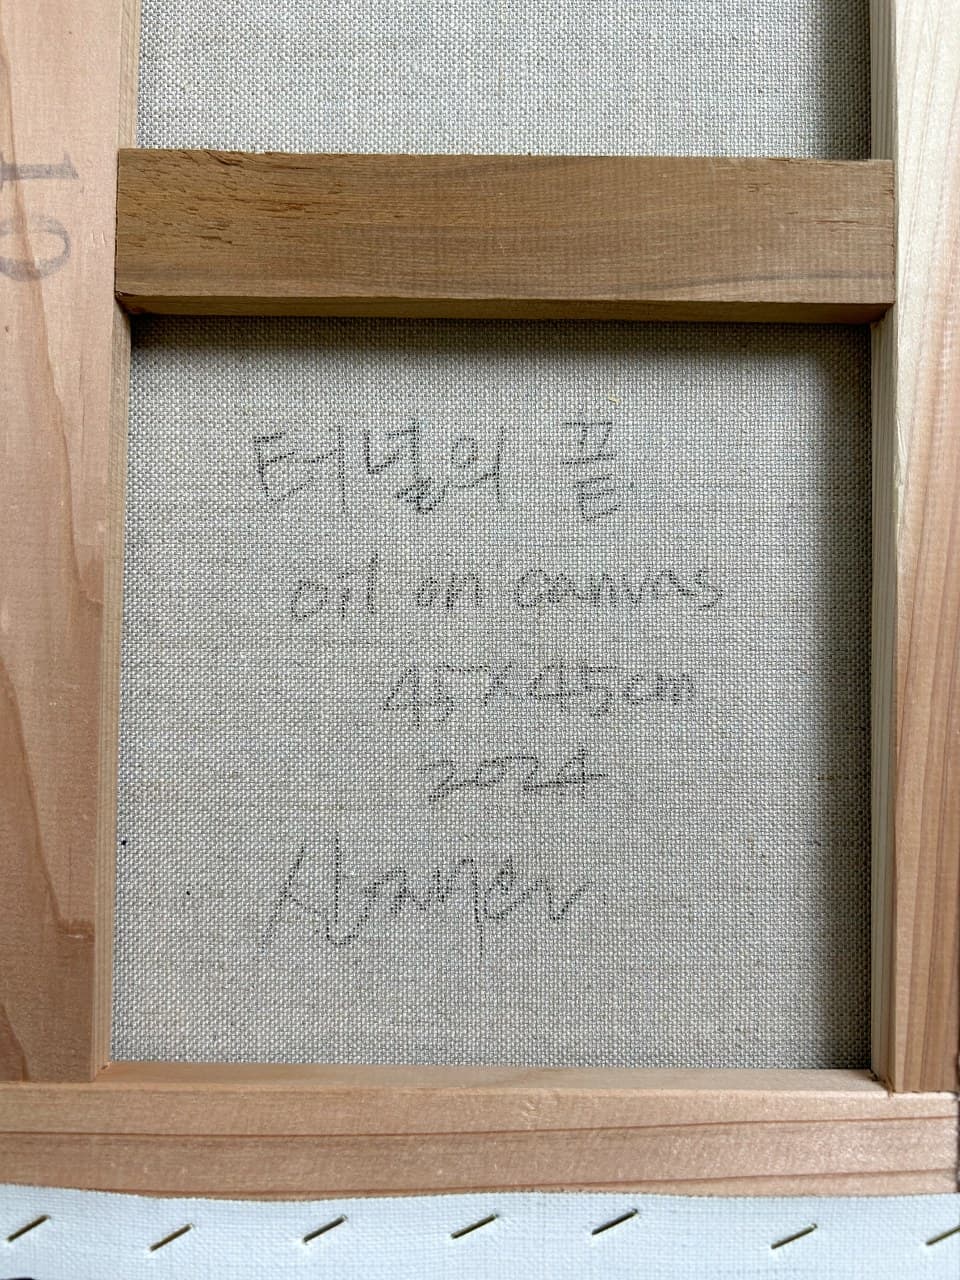 터널의 끝
oil on canvas
45x45cm
2024